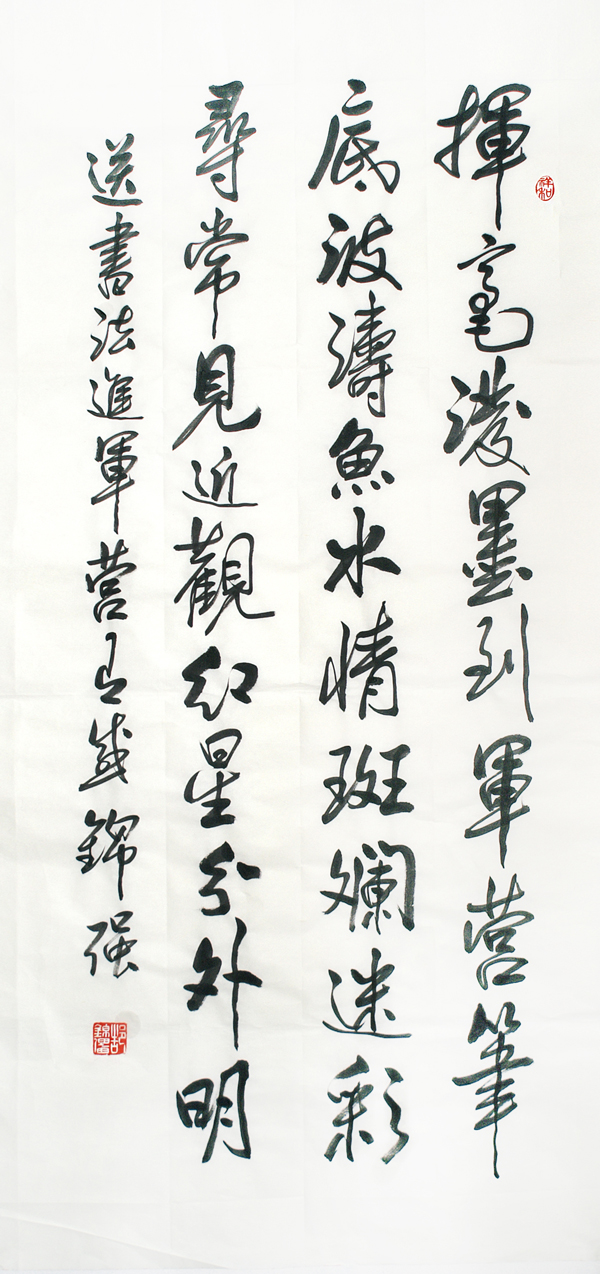 祥和
揮毫潑墨到軍营筆
底波濤魚水情斑斕迷彩
尋常見近觀红星分外明
送書法進軍营有感錦强